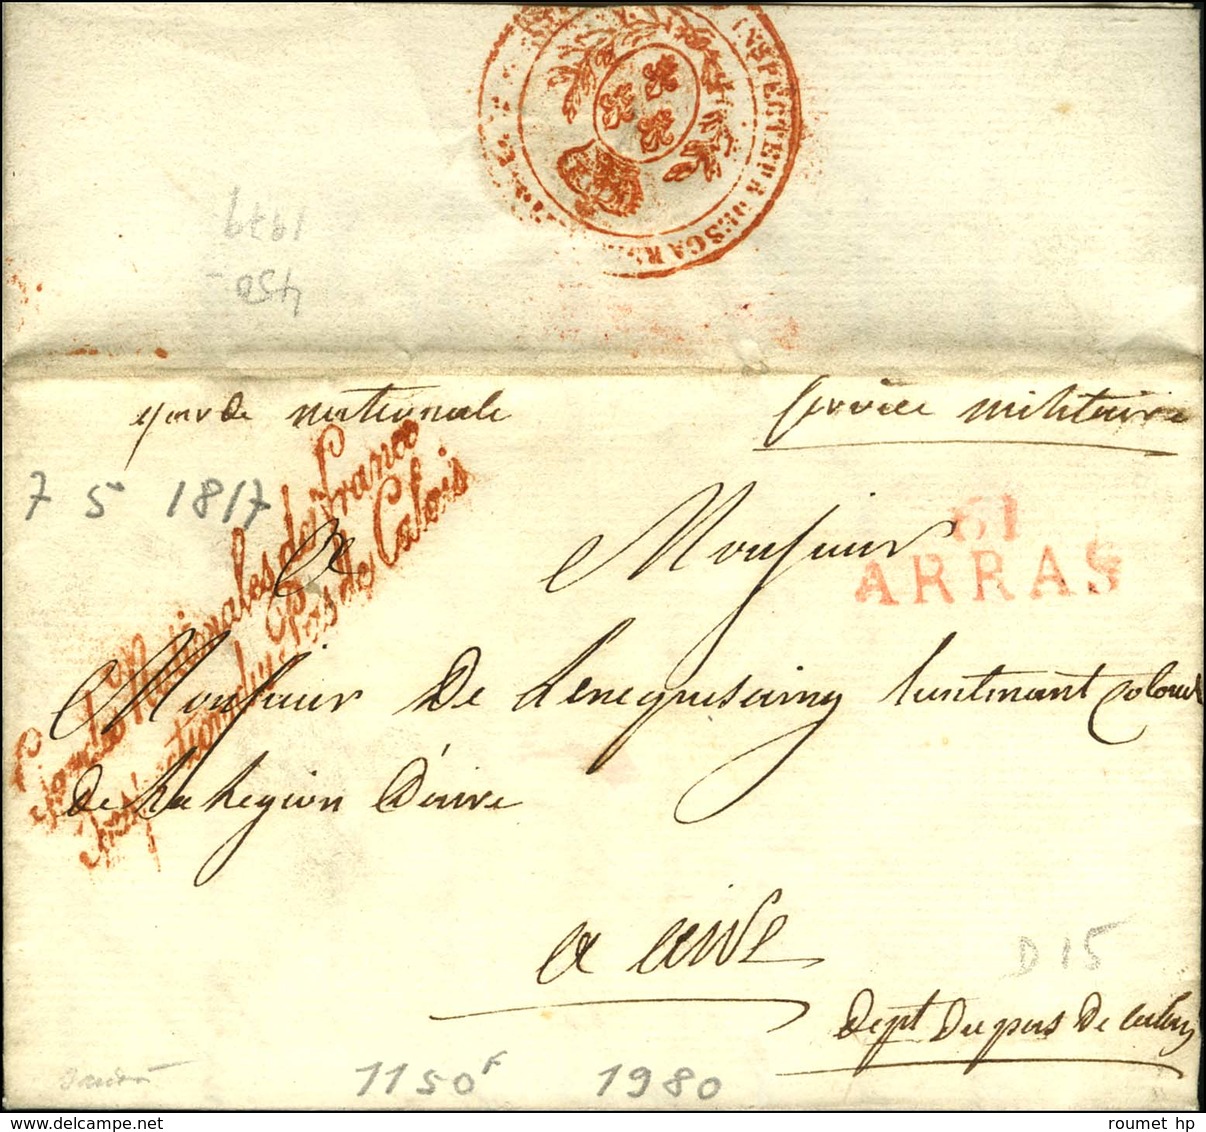 INSPECTEUR DES GARDES
1979
450-
garde nationale
service militaire
7 5 1817
Gardes Nationales de France
Inspection du Pas de Calais
61
ARRAS
A Monsieur
Monsieur De Lenequesaing lieutenant Colonel
De La Legion D'aire
a aire
Dept Du pas De calais
D 15
1150F
1980
roumet hp